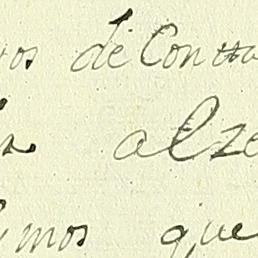 os de Contra
alze
mos que